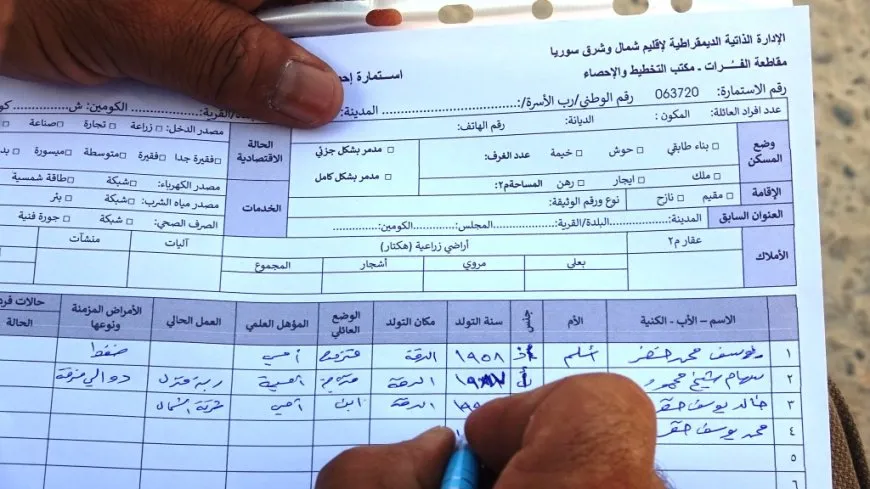 الإدارة الذاتية الديمقراطية لإقليم شمال وشرق سوريا
مقاطعة الفرات - مكتب التخطيط والإحصاء
استمارة
رقم الاستمارة: 063720 رقم الوطني/رب الأسرة/: المدينة: /القرية: الكومين: ش
عدد افراد العائلة: المكون: الديانة: رقم الهاتف:
وضع المسكن
□ بناء طابقي □ حوش □ خيمة عدد الغرف: □ مدمر بشكل جزئي
□ ملك □ ايجار □ رهن المساحة م٢: □ مدمر بشكل كامل
الحالة الاقتصادية
مصدر الدخل: □ زراعة □ تجارة □ صناعة
□ فقيرة جدا □ فقيرة □ متوسطة □ ميسورة
الإقامة □ مقيم □ نازح نوع ورقم الوثيقة:
العنوان السابق المدينة: البلدة/القرية: المجلس: الكومين:
الخدمات
مصدر الكهرباء: □ شبكة □ طاقة شمسية
مصدر مياه الشرب: □ شبكة □ بئر
الصرف الصحي: □ شبكة □ جورة فنية
الأملاك عقار م٢ أراضي زراعية (هكتار) آليات منشآت
بعلي مروي أشجار المجموع
الاسم – الأب - الكنية الأم جنس سنة التولد مكان التولد الوضع العائلي المؤهل العلمي العمل الحالي الأمراض المزمنة ونوعها الحالة
١ يوسف محمد ١٩٥٨ الرقة متزوج أمي ضغط
٢ سهام شيخ الرقة أمية ربة منزل دوالي
٣ خالد يوسف الرقة ابن أمي
٤ محمد يوسف
٥
٦